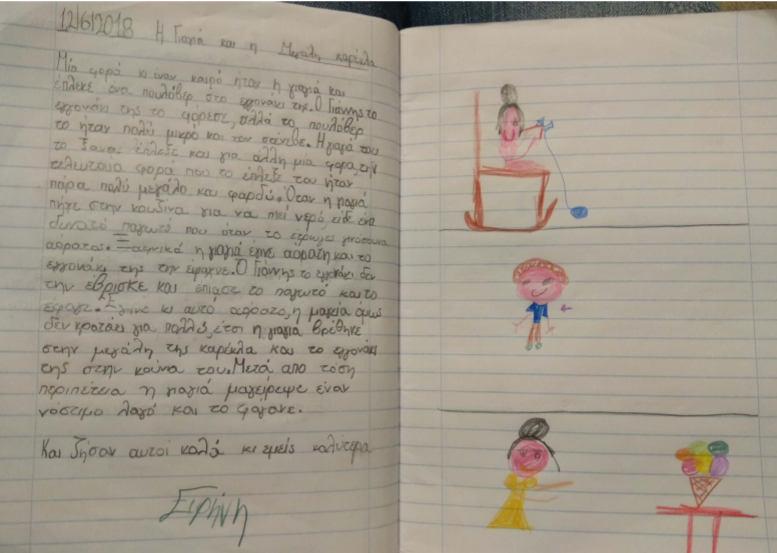 12/6/2018 Η Γιαγιά και η Μεγάλη καρέκλα
Μία φορά κι έναν καιρό ήταν η γιαγιά και
έπλεκε ένα πουλόβερ στο εγγονάκι της. Ο Γιάννης το
εγγονάκι της το φόρεσε, αλλά το πουλόβερ
το ήταν πολύ μικρό και τον στένεβε. Η γιαγιά του
το ξανα έπλεξε και για άλλη μια φορα, την
τελευταία φορα που το έπλεξε του ήταν
πάρα πολύ μεγάλο και φαρδύ. Όταν η γιαγιά
πήγε στην κουζίνα για να πιεί νερό, είδε ένα
παγωτό που όταν το έτρωγε γινόσουνα
αόρατος. Ξαφνικά η γιαγιά έγινε αόρατη και το
εγγονάκι της την έψαχνε. Ο Γιάννης το εγγονάκι δεν
την έβρισκε και έπιασε το παγωτό και το
έφαγε. Έγινε κι αυτό αόρατο, η μαγεία όμως
δεν κρατάει για πολλύ, έτσι η γιαγιά βρέθηκε
στην μεγάλη της καρέκλα και το εγγονάκι
της στην κούνα του. Μετά απο τόση
περιπέτεια η γιαγιά μαγείρεψε έναν
νόστιμο λαγό και το φάγανε.
Και ζήσαν αυτοί καλά κι εμείς καλύτερα
Ειρήνη